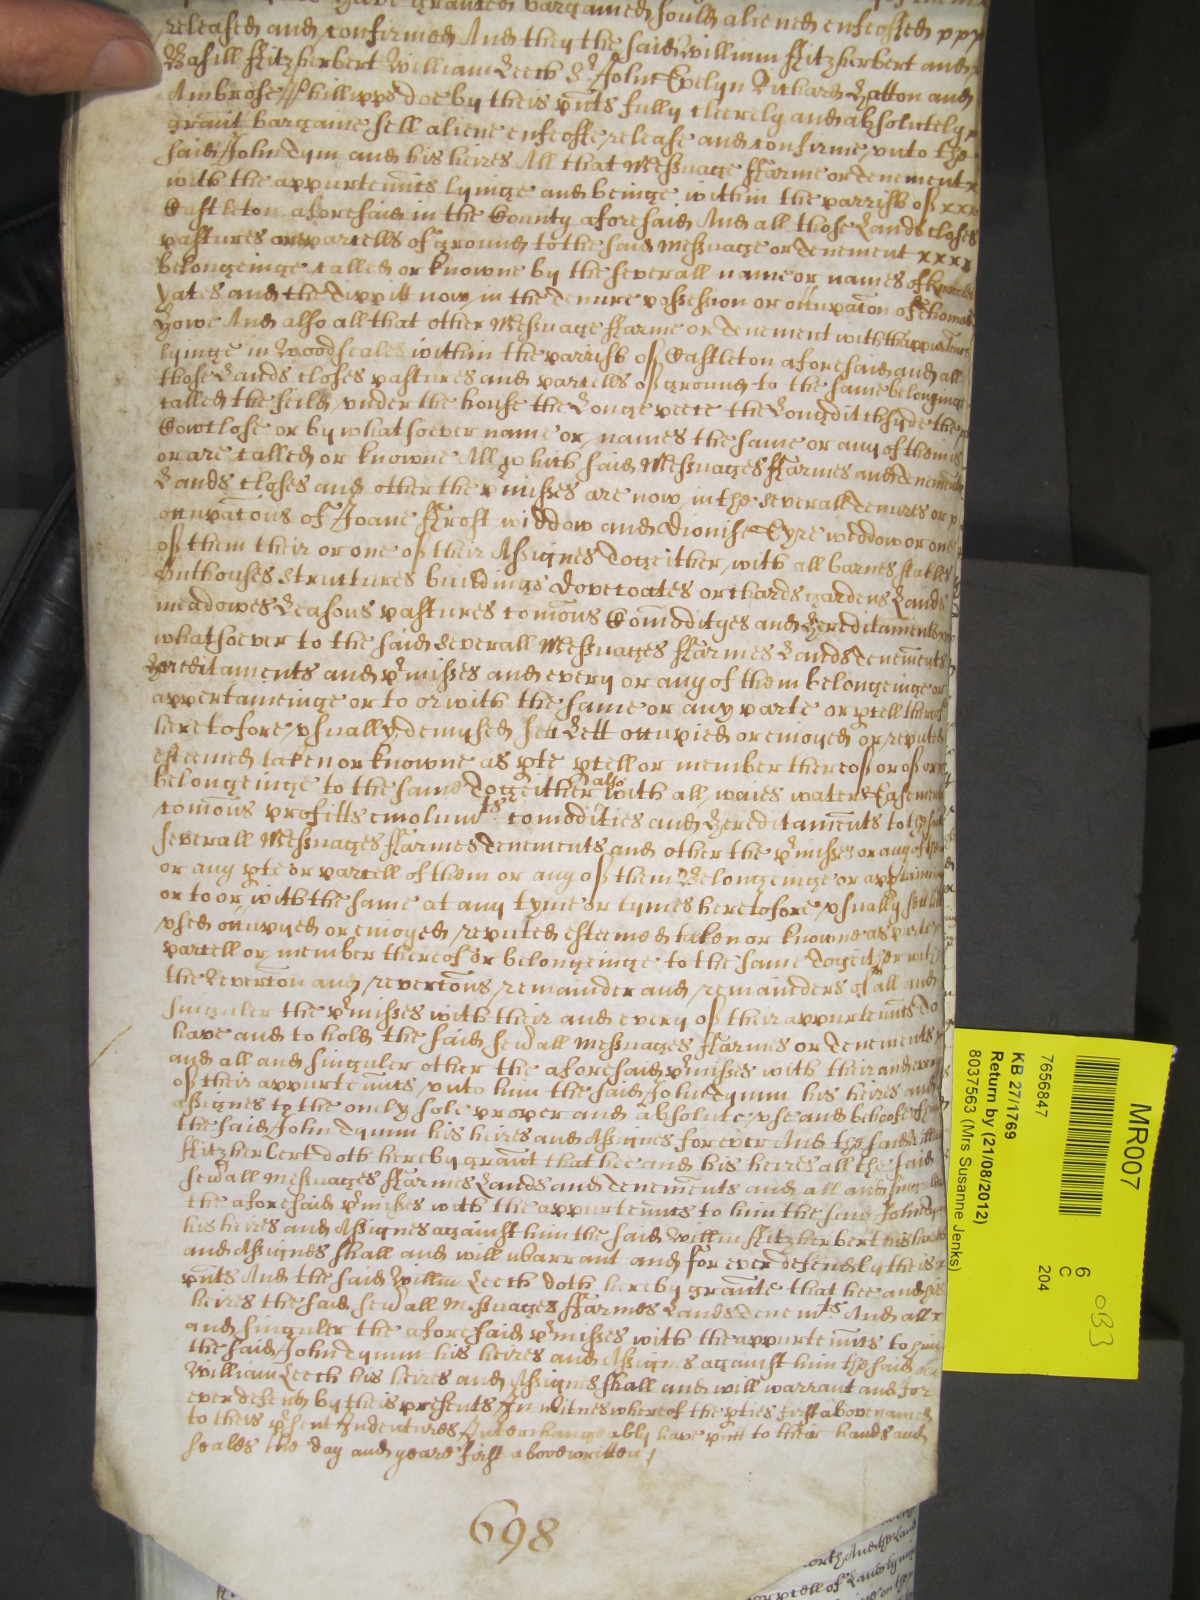 have granted bargained sould aliened enfeoffed xxx
released and confirmed And they the said William Fitzherbert and
Basill Fitzherbert William Leech Sr John Evelyn Richard Hatton and
Ambrose Phillipps doe by theis pnts fully cleerely and absolutely
graunt bargaine sell aliene enfeoffe release and confirme vnto the
said John Tym and his heires All that Messuage ffarme or Tenement x
with the appurtennts lyinge and beinge within the parrish of xxx
Castleton aforesaid in the County aforesaid And all those Lands closes
pastures or parcells of ground to the said Messuage or Tenement xxxx
belongeinge called or knowne by the severall name or names of
yates and the now in the Tenure possession or occupacon of Thomas
Howe And also all that other Messuage ffarme or Tenement with thappurtennts
lyinge in Woodseales within the parrish of Castleton aforesaid and all
those Lands closes pastures and parcells of ground to the same belonginge
called the feild vnder the house the Longe peece the Longditch syde the
Cowclose or by what soever name or names the same or any of them is
or are called or knowne All wch said Messuages ffarmes and Tenements
Lands closes and other the pmisses are now in the severall Tenures or
occupacons of Joane ffrost widdow and Dionise Eyre widdow or one
of them their or one of their Assignes Togeither with all barnes stables
Outhouses Structures buildings Dovecoates orchards gardens Lands
meadowes Leasons pastures comons Comodityes and Hereditaments
whatsoever to the said severall Messuages ffarmes Lands Tenements
Hereditaments and pmisses and every or any of them belongeinge or
appertaineinge or to or with the same or any parte or pcell thereof
heretofore vsually demysed sett Lett occupied or enioyed or reputed
esteemed taken or knowne as pte pcell or member thereof or of or
belongeinge to the same Togeither also with all waies waters Easements
comons profitts emolumts comodities and Hereditaments to the said
severall Messuages ffarmes Tenements and other the pmisses or any of
or any pte or parcell of them or any of them Belongeinge or apptaining
or to or with the same at any tyme or tymes heretofore vsually sett lett
vsed occupyed or enioyed reputed esteemed taken or knowne as parte
parcell or member thereof or belongeinge to the same Togeither with
the Revercon and revercons remainder and remainders of all and
singuler the pmisses with their and every of their appurtennts To
have and to hold the said sevall Messuages ffarmes or Tenements
and all and singuler other the aforesaid pmisses with their and every
of their appurtennts vnto him the said John Tymm his heires and
assignes to the onely sole proper and absolute vse and behoofe of
the said John Tymm his heires and Assignes for ever And the said Willm
Fitzherbert doth hereby graunt that hee and his heires all the said
sevall Messuages ffarmes Lands and Tenements and all and singuler
the aforesaid pmisses with the appurtennts to him the said John Tym
his heires and Assignes against him the said Willm Fitzherbert his heires
and Assignes shall and will warrant and for ever defend by theis
pnts And the said Willm Leech doth hereby graunte that hee and his
heires the said sevall Messuages ffarmes Lands Tenemts And all x
and singuler the aforesaid pmisses with the appurtennts to him
the said John Tymm his heires and Assignes against him the said
William Leech his heires and Assignes shall and will warrant and for
ever defend by theis presents In witnes whereof the pties first above named
to theis psent Indentures Interchangeably have putt to their hands and
seales the day and yeare first above written
698
MR007
7656847
6
C
204
KB 27/1769
Return by (21/08/2012)
8037563 (Mrs Susanne Jenks)
083